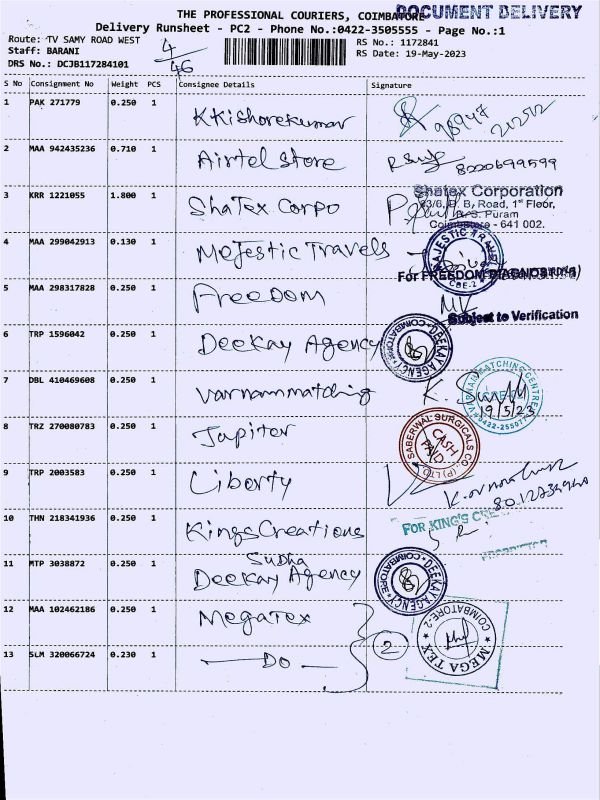 THE PROFESSIONAL COURIERS, COIMBATORE
DOCUMENT DELIVERY
Delivery Runsheet - PC2 - Phone No.:0422-3505555 - Page No.:1
Route: TV SAMY ROAD WEST
4/46
RS No.: 1172841
Staff: BARANI
RS Date: 19-May-2023
DRS No.: DCJB117284101
S No Consignment No Weight PCS Consignee Details Signature
1 PAK 271779 0.250 1 KKishorekumar
2 MAA 942435236 0.710 1 Airtel Store 8000699599
3 KRR 1221055 1.800 1 ShaTex Corpo
Shatex Corporation
D. B. Road, 1st Floor,
R.S. Puram
Coimbatore - 641 002.
4 MAA 299042913 0.130 1 Mejestic Travels
MAJESTIC TRAVELS CBE-2
For FREEDOM DIAGNOSTICS
5 MAA 298317828 0.250 1 Freedom
Subject to Verification
6 TRP 1596042 0.250 1 Deekay Agency
DEEKAY AGENCY COIMBATORE
7 DBL 410469608 0.250 1 Varnammatching
VARNAM MATCHING CENTRE
19/5/23
8 TRZ 270080783 0.250 1 Jupiter
SABERWAL SURGICALS CO. (P) LTD
CASH PAID
9 TRP 2003583 0.250 1 Liberty
10 THN 218341936 0.250 1 Kings Creations
FOR KING'S
11 MTP 3038872 0.250 1 Subha
Deekay Agency
DEEKAY AGENCY COIMBATORE
12 MAA 102462186 0.250 1 Megatex
2
COIMBATORE-2 MEGA TEX
13 SLM 320066724 0.230 1 — Do —